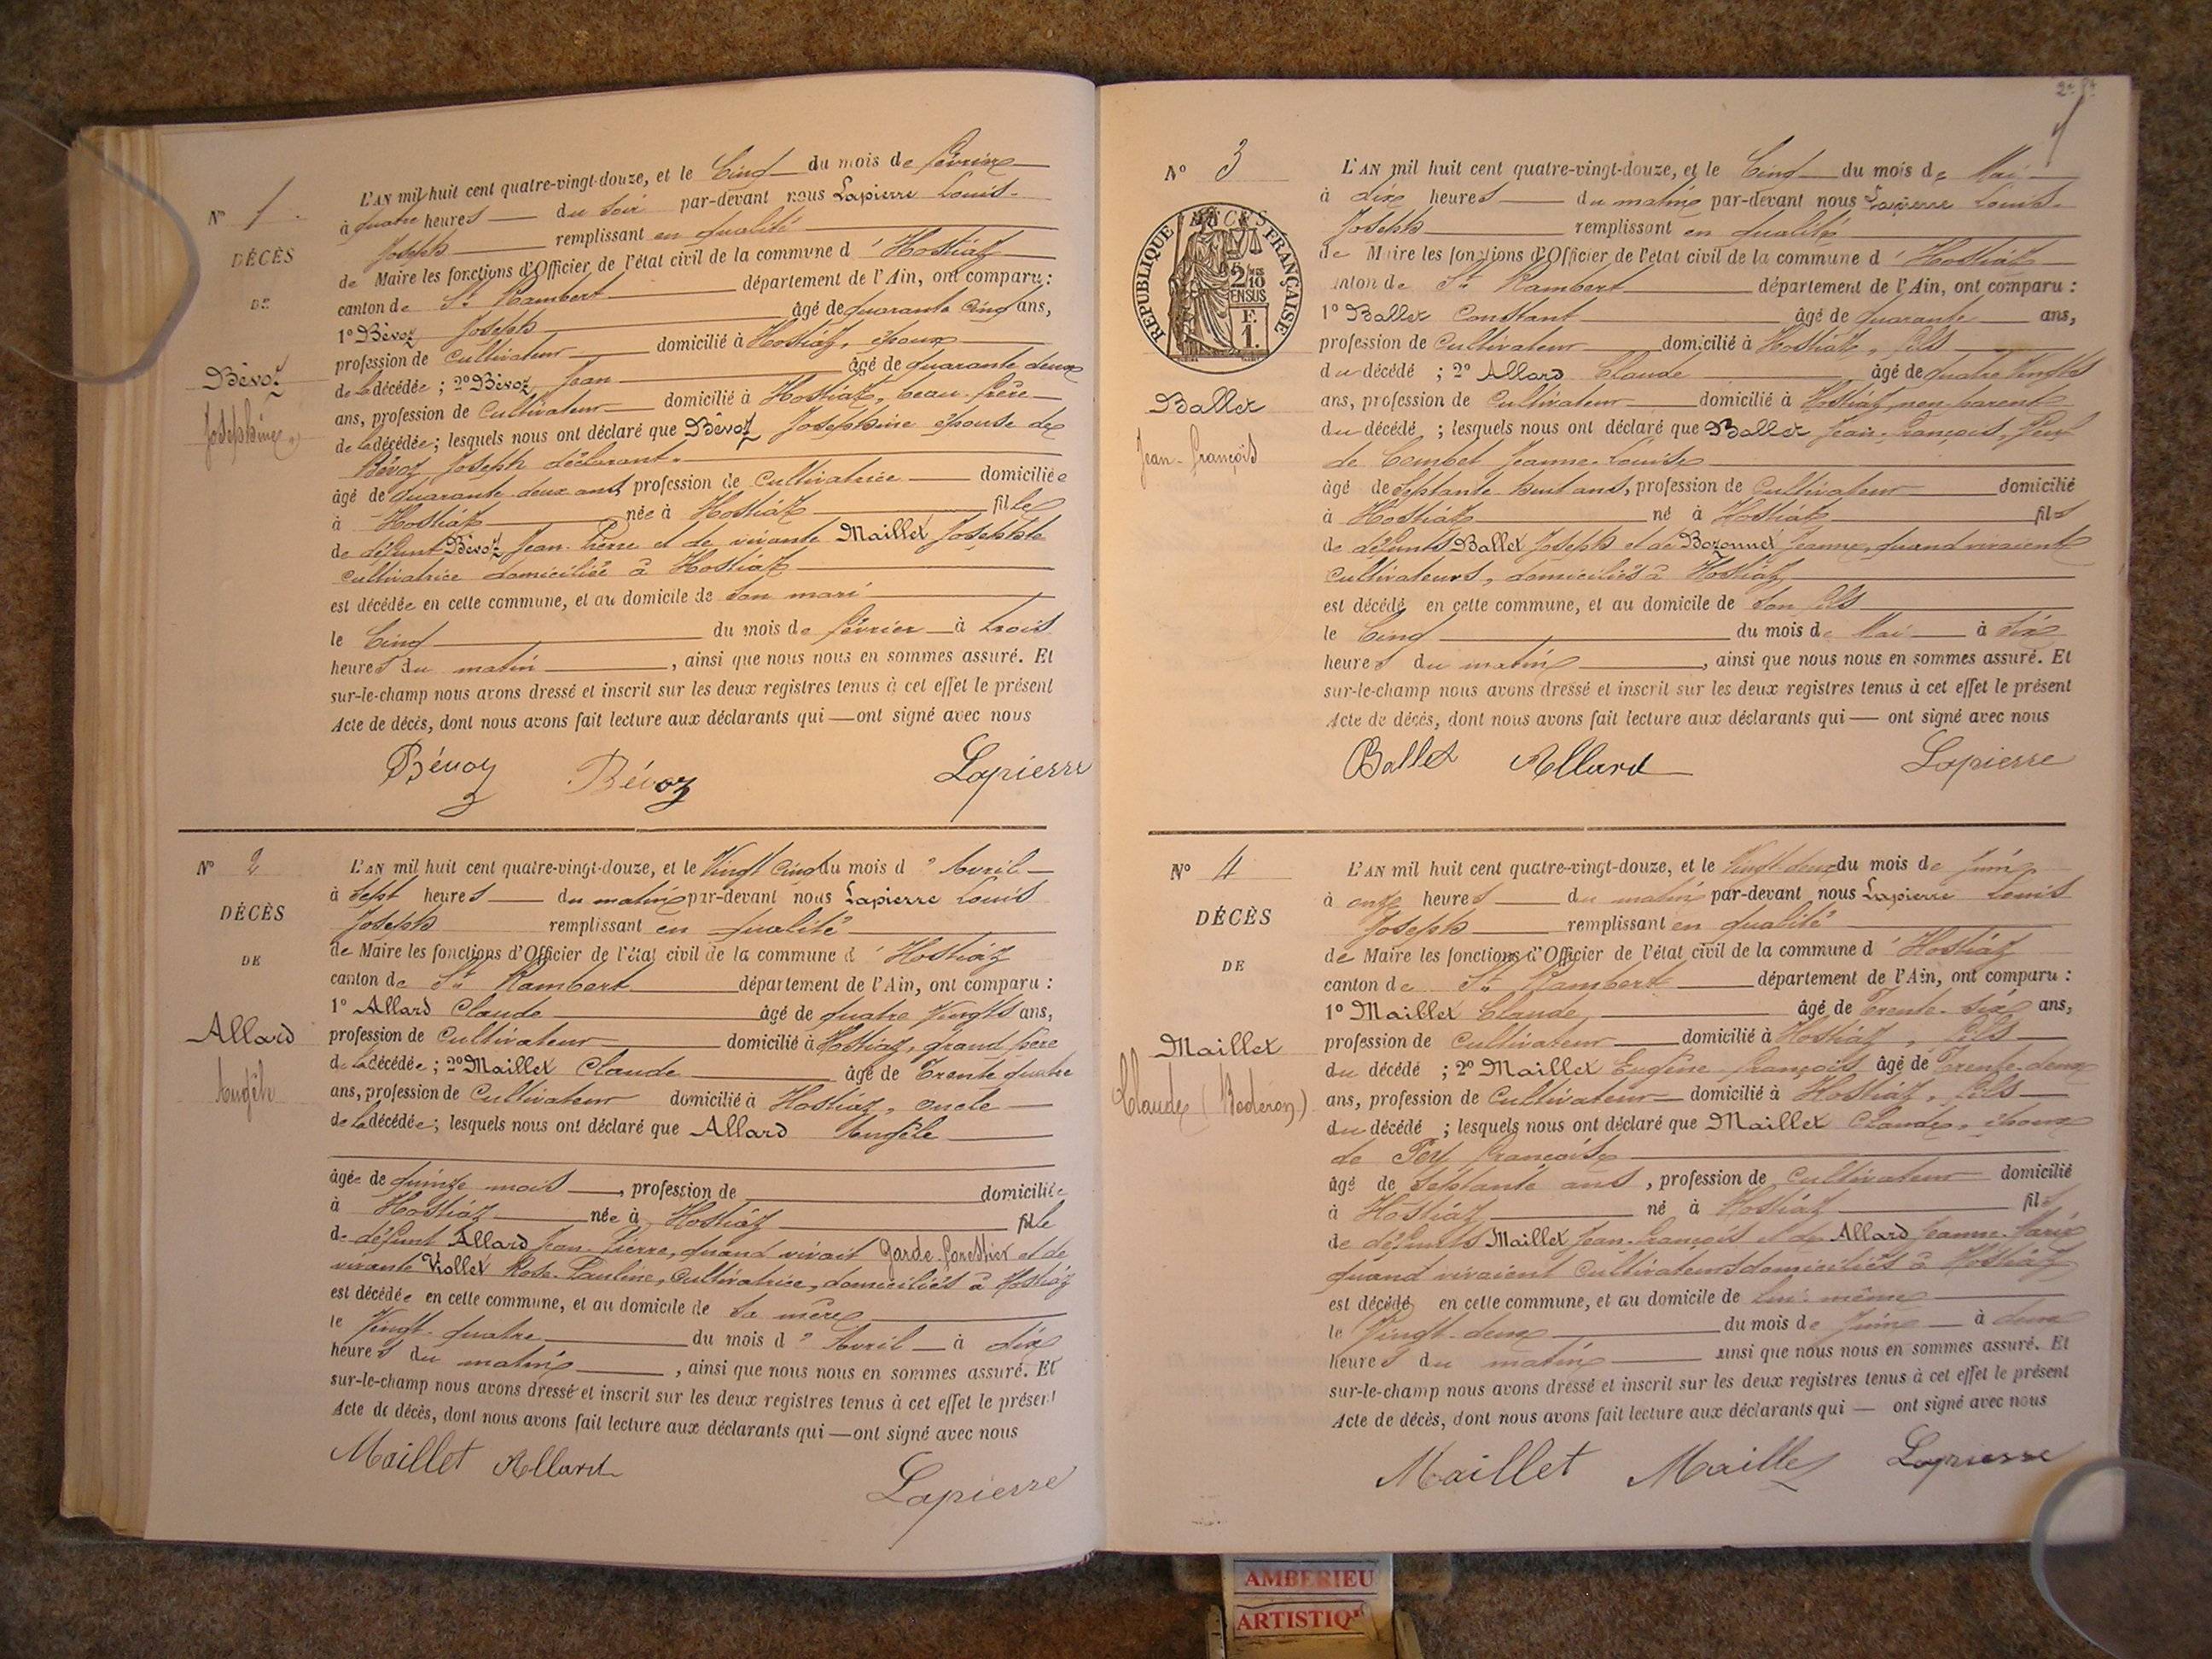 N° 1
DÉCÈS
DE
Bévoz
Joséphine
L'AN mil huit cent quatre-vingt-douze, et le Cinq du mois de février
à quatre heures du soir par-devant nous Lapierre Louis
Joseph remplissant en qualité
de Maire les fonctions d'Officier de l'état civil de la commune d'Hostiaz
canton de St Rambert département de l'Ain, ont comparu :
1° Bévoz Joseph âgé de quarante cinq ans,
profession de Cultivateur domicilié à Hostiaz, époux
de la décédée ; 2° Bévoz Jean âgé de quarante deux
ans, profession de Cultivateur domicilié à Hostiaz, beau-frère
de la décédée ; lesquels nous ont déclaré que Bévoz Joséphine épouse de
Bévoz Joseph déclarant
âgé de quarante deux ans, profession de Cultivatrice domiciliée
à Hostiaz née à Hostiaz fille
de défunt Bévoz Jean-Pierre et de vivante Maillet Josephte
cultivatrice domiciliée à Hostiaz
est décédée en cette commune, et au domicile de son mari
le Cinq du mois de février à trois
heures du matin, ainsi que nous nous en sommes assuré. Et
sur-le-champ nous avons dressé et inscrit sur les deux registres tenus à cet effet le présent
Acte de décès, dont nous avons fait lecture aux déclarants qui — ont signé avec nous
Bévoz Bévoz Lapierre
N° 2
DÉCÈS
DE
Allard
Angèle
L'AN mil huit cent quatre-vingt-douze, et le Vingt Cinq du mois d'Avril
à sept heures du matin par-devant nous Lapierre Louis
Joseph remplissant en qualité
de Maire les fonctions d'Officier de l'état civil de la commune d'Hostiaz
canton de St Rambert département de l'Ain, ont comparu :
1° Allard Claude âgé de quatre Vingts ans,
profession de Cultivateur domicilié à Hostiaz, grand père
de la décédée ; 2° Maillet Claude âgé de Trente quatre
ans, profession de Cultivateur domicilié à Hostiaz, oncle
de la décédée ; lesquels nous ont déclaré que Allard Angèle
âgée de quinze mois, profession de domiciliée
à Hostiaz née à Hostiaz fille
de défunt Allard Jean-Pierre, quand vivait Garde forestier et de
vivante Viollet Rose-Pauline, Cultivatrice, domiciliés à Hostiaz
est décédée en cette commune, et au domicile de sa mère
le Vingt-quatre du mois d'Avril à dix
heures du matin, ainsi que nous nous en sommes assuré. Et
sur-le-champ nous avons dressé et inscrit sur les deux registres tenus à cet effet le présent
Acte de décès, dont nous avons fait lecture aux déclarants qui — ont signé avec nous
Maillet Allard
Lapierre
N° 3
RÉPUBLIQUE FRANÇAISE
2/10 EN SUS
F. 1.
Ballet
Jean-François
L'AN mil huit cent quatre-vingt-douze, et le Cinq du mois de Mai
à dix heures du matin par-devant nous Lapierre Louis
Joseph remplissant en qualité
de Maire les fonctions d'Officier de l'état civil de la commune d'Hostiaz
canton de St Rambert département de l'Ain, ont comparu :
1° Ballet Constant âgé de quarante ans,
profession de Cultivateur domicilié à Hostiaz, fils
du décédé ; 2° Allard Claude âgé de quatre Vingts
ans, profession de Cultivateur domicilié à Hostiaz, non parent
du décédé ; lesquels nous ont déclaré que Ballet Jean-François, Veuf
de Combet Jeanne-Louise
âgé de septante-huit ans, profession de Cultivateur domicilié
à Hostiaz né à Hostiaz fils
de défunts Ballet Joseph et de Bozonnet Jeanne, quand vivaient
Cultivateurs, domiciliés à Hostiaz
est décédé en cette commune, et au domicile de son fils
le Cinq du mois de Mai à six
heures du matin, ainsi que nous nous en sommes assuré. Et
sur-le-champ nous avons dressé et inscrit sur les deux registres tenus à cet effet le présent
Acte de décès, dont nous avons fait lecture aux déclarants qui — ont signé avec nous
Ballet Allard Lapierre
N° 4
DÉCÈS
DE
Maillet
Claude
L'AN mil huit cent quatre-vingt-douze, et le Vingt-deux du mois de Juin
à onze heures du matin par-devant nous Lapierre Louis
Joseph remplissant en qualité
de Maire les fonctions d'Officier de l'état civil de la commune d'Hostiaz
canton de St Rambert département de l'Ain, ont comparu :
1° Maillet Claude âgé de Trente-six ans,
profession de Cultivateur domicilié à Hostiaz, fils
du décédé ; 2° Maillet Eugène François âgé de Trente-deux
ans, profession de Cultivateur domicilié à Hostiaz, fils
du décédé ; lesquels nous ont déclaré que Maillet Claude, époux
de Françoise
âgé de septante ans, profession de Cultivateur domicilié
à Hostiaz né à Hostiaz fils
de défunts Maillet Jean-François et de Allard Jeanne-Marie
quand vivaient Cultivateurs domiciliés à Hostiaz
est décédé en cette commune, et au domicile de lui-même
le Vingt-deux du mois de Juin à deux
heures du matin ainsi que nous nous en sommes assuré. Et
sur-le-champ nous avons dressé et inscrit sur les deux registres tenus à cet effet le présent
Acte de décès, dont nous avons fait lecture aux déclarants qui — ont signé avec nous
Maillet Maillet Lapierre
AMBERIEU
ARTISTIQ